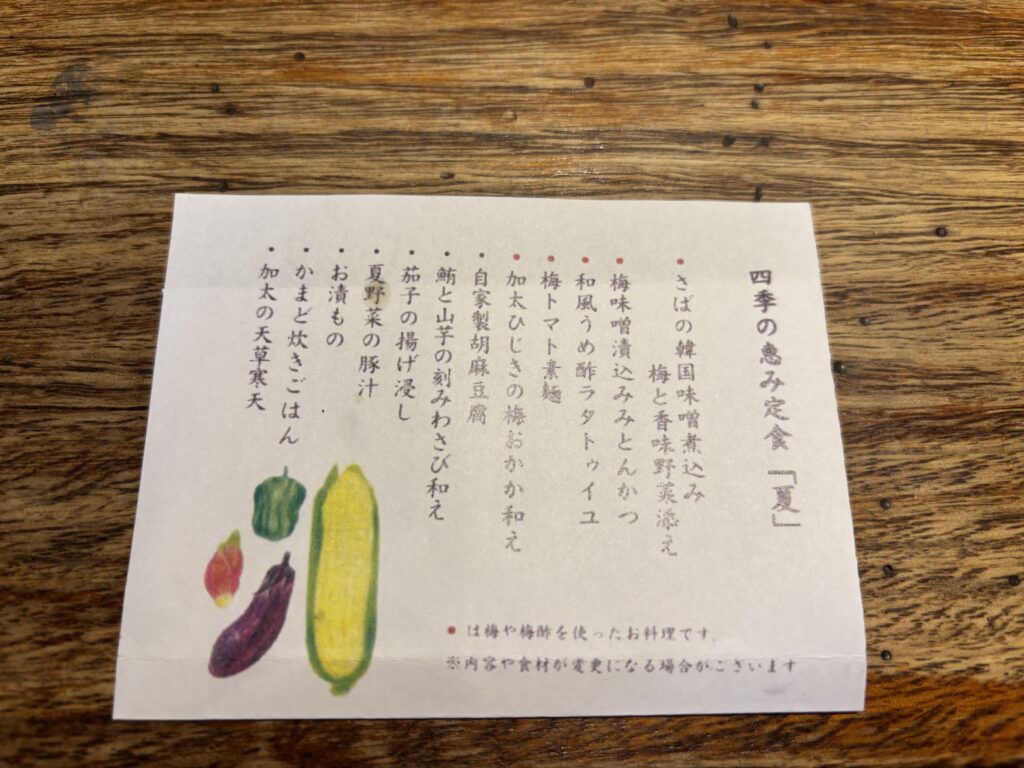 四季の恵み定食「夏」
・さばの韓国味噌煮込み
梅と香味野菜添え
・梅味噌漬込みみとんかつ
・和風うめ酢ラタトゥイユ
・梅トマト素麺
・加太ひじきの梅おかか和え
・自家製胡麻豆腐
・鮪と山芋の刻みわさび和え
・茄子の揚げ浸し
・夏野菜の豚汁
・お漬もの
・かまど炊きごはん
・加太の天草寒天
● は梅や梅酢を使ったお料理です。
※内容や食材が変更になる場合がございます